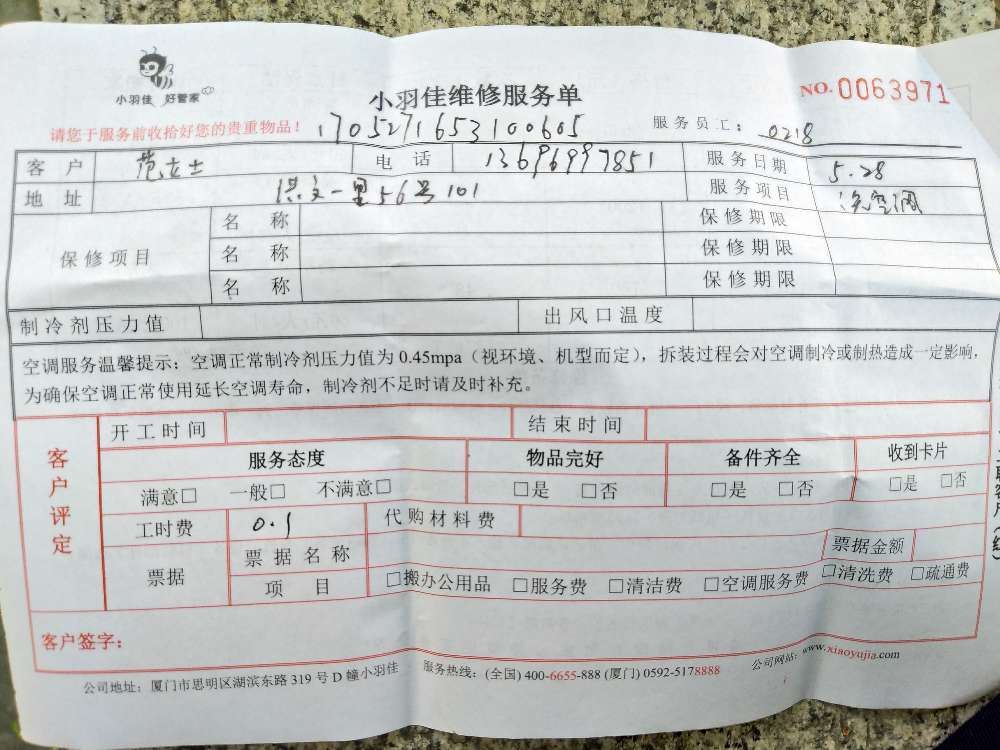 小羽佳 好管家
小羽佳维修服务单
NO.0063971
请您于服务前收拾好您的贵重物品!
1705271653100605
服务员工: 0218
客户 范女士 电话 13696997851 服务日期 5.28
地址 洪文一里56号101 服务项目 洗空调
保修项目
名称 保修期限
名称 保修期限
名称 保修期限
制冷剂压力值 出风口温度
空调服务温馨提示:空调正常制冷剂压力值为0.45mpa(视环境、机型而定),拆装过程会对空调制冷或制热造成一定影响,
为确保空调正常使用延长空调寿命,制冷剂不足时请及时补充。
客户评定
开工时间 结束时间
服务态度 物品完好 备件齐全 收到卡片
满意□ 一般□ 不满意□ □是 □否 □是 □否 □是 □否
工时费 0.1 代购材料费
票据 票据名称 票据金额
项目 □搬办公用品 □服务费 □清洁费 □空调服务费 □清洗费 □疏通费
客户签字:
公司地址:厦门市思明区湖滨东路319号D幢小羽佳 服务热线:(全国)400-6655-888 (厦门)0592-5178888 公司网站:www.xiaoyujia.com